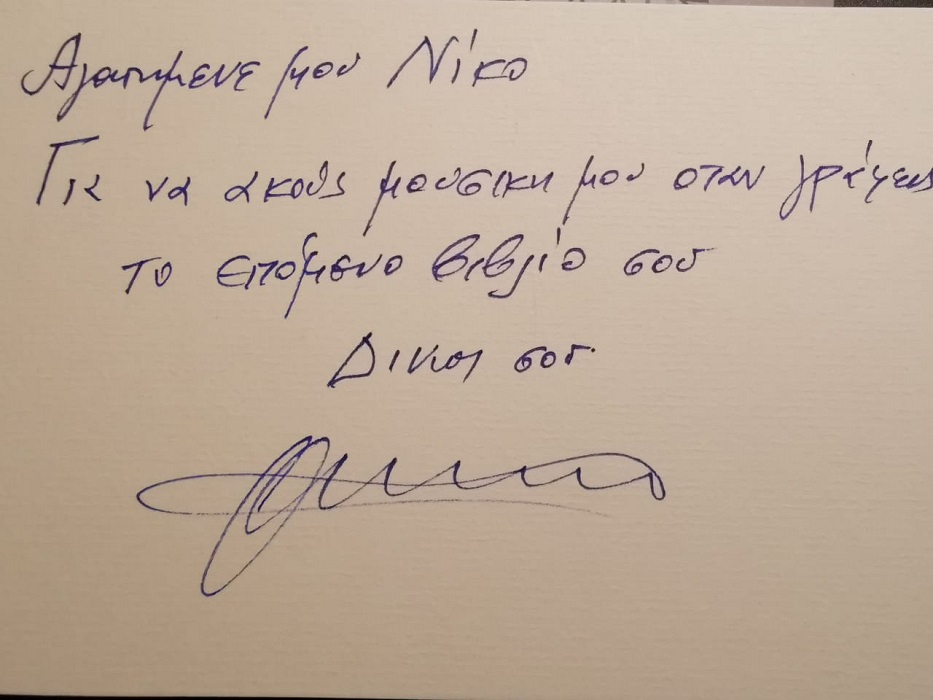 Αγαπημενε μου Νίκο
Για να ακούς μουσικη μου οταν γράψεις
το επόμενο βιβλίο σου
Δικοσ σου